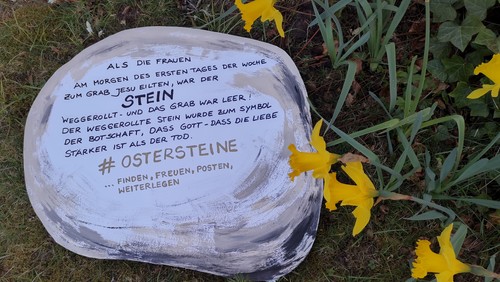 ALS DIE FRAUEN
AM MORGEN DES ERSTEN TAGES DER WOCHE
ZUM GRAB JESU EILTEN, WAR DER
STEIN
WEGGEROLLT - UND DAS GRAB WAR LEER!
DER WEGGEROLLTE STEIN WURDE ZUM SYMBOL
DER BOTSCHAFT, DASS GOTT - DASS DIE LIEBE
STÄRKER IST ALS DER TOD.
# OSTERSTEINE
... FINDEN, FREUEN, POSTEN,
WEITERLEGEN